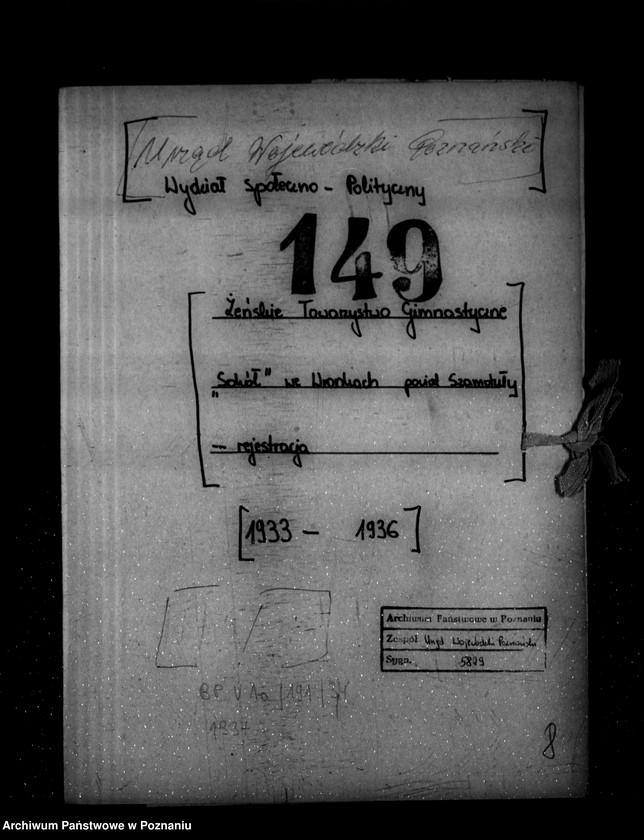 [Urząd Wojewódzki Poznański
Wydział Społeczno - Polityczny]
149
[Żeńskie Towarzystwo Gimnastyczne
"Sokół" we Wronkach powiat Szamotuły
— rejestracja]
[1933 — 1936]
Archiwum Państwowe w Poznaniu
Zespół Urząd Wojewódzki Poznański
Sygn. 5829
1937
8
Archiwum Państwowe w Poznaniu